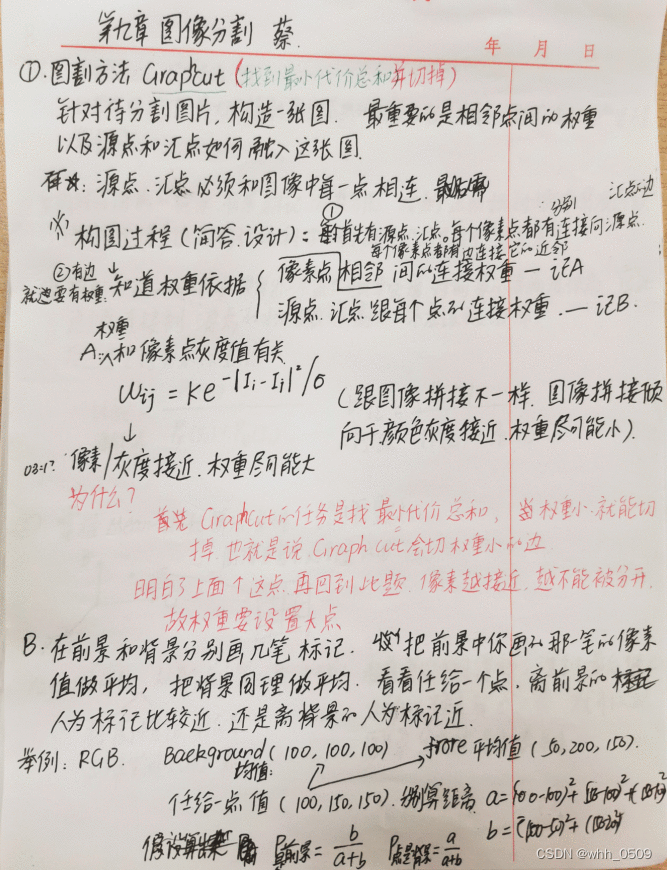 第九章 图像分割 蔡.
年 月 日
①. 图割方法 Graphcut (找到最小代价总和并切掉)
针对待分割图片, 构造一张图. 最重要的是相邻点间的权重
以及源点和汇点如何融入这张图.
源点. 汇点必须和图像中每一点相连.
分别 汇点的边
※ 构图过程 (简答. 设计): ① 首先有源点. 汇点。每个像素点都有连接向源点.
每个像素点都有边连接它的近邻
②有边
就要有权重. 知道权重依据 { 像素点相邻间的连接权重 — 记A
源点. 汇点跟每个点的连接权重. — 记B.
权重
A: 和像素点灰度值有关
Wij = Ke^-|Ii-Ij|²/σ
(跟图像拼接不一样. 图像拼接倾
向于颜色灰度接近. 权重尽可能小).
↓
像素/灰度接近. 权重尽可能大
为什么?
首先 Graphcut的任务是找最小代价总和, 当权重小. 就能切
掉. 也就是说, Graph cut会切权重小的边.
明白了上面个这点. 再回到此题. 像素越接近. 越不能被分开.
故权重要设置大点
B. 在前景和背景分别画几笔标记. 把前景中你画的那一笔的像素
值做平均, 把背景同理做平均. 看看任给一个点. 离前景的
人为标记比较近. 还是离背景的人为标记近.
举例: RGB. Background (100, 100, 100) 平均值 (50, 200, 150).
均值:
任给一点值 (100, 150, 150). 算距离. a=
b=
假设 P前景= b/a+b P点是背景= a/a+b
CSDN @whh_0509